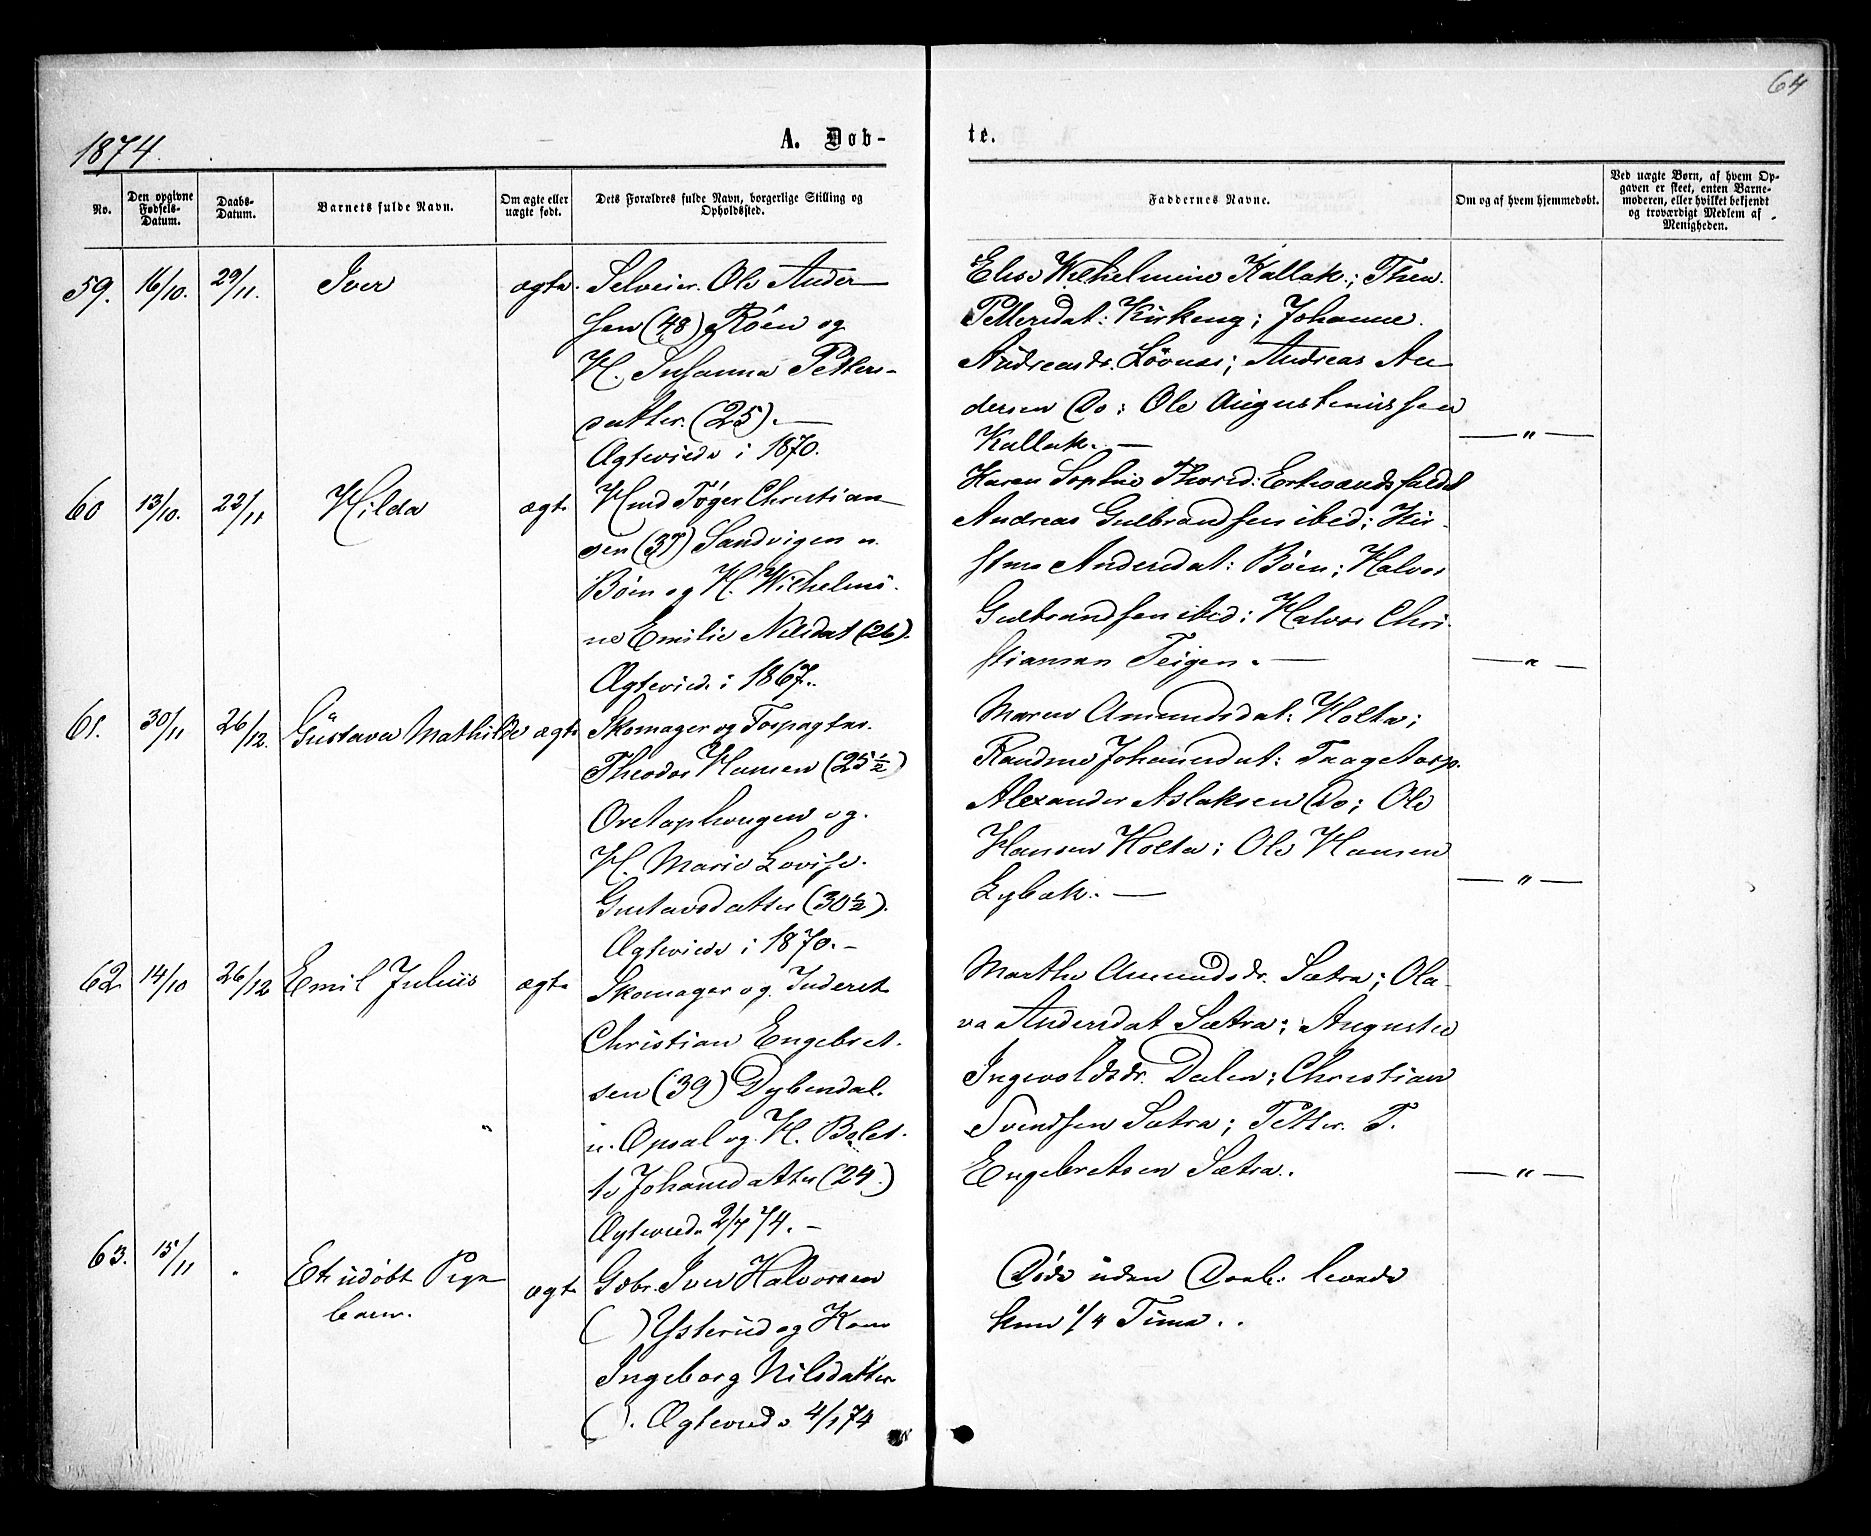 64
1874.
A. Døb-
te.
No.
Den opgivne Fødsels-Datum.
Daabs-Datum.
Barnets fulde Navn.
Om ægte eller uægte født.
Dets Forældres fulde Navn, borgerlige Stilling og Opholdssted.
Faddernes Navne.
Om og af hvem hjemmedøbt.
Ved uægte Børn, af hvem Opgaven er skeet, enten Barnemoderen, eller hvilket bekjendt og troværdigt Medlem af Menigheden.
59. 16/10. 29/11. Iver ægte. Selveier. Ole Ander
sen (48) Röen og
H. Susanna Petters-
datter. (25). —
Ægteviede i 1870.
Elise Wilhelmine Kallak.; Theo.
Pettersdat: Kirkeng; Johanne.
Andreasdr. Lövnes; Andreas An
dersen Do; Ole Augustinussen
Kallak. — — " —
60 13/10. 22/11 Hilda ægte Hmd Töger Christian
sen (37) Sandvigen u.
Böen og H. Wilhelmi-
ne Emilie Nilsdat (26).
Ægteviede i 1867.
Karen Sophie Thorsd:
Andreas Gulbrandsen ibid; Kir-
stine Andersdat: Böen; Halvor
Gulbrandsen ibid; Halvor Chri-
stiansen Teigen. — — " —
61. 30/11 26/12. Gustava Mathilde ægte Skomager og Forpagter.
Theodor Hansen (25 1/2)
Oretophaugen og.
H. Marie Lovise.
Gustavsdatter (30 1/2).
Ægteviede i 1870. –
Maren Amundsdat: Holta;
Randine Johannesdat: Tragetorp.
Alexander Aslaksen Do; Ole
Hansen Holta; Ole Hansen
Lybæk. — — " —
62 14/10 26/12 Emil Julius ægte Skomager og Inderst
Christian Engebret-
sen (39) Dybendal.
u. Opsal og H. Bolet-
te Johansdatter (24.)
Ægteviede 2/7 74. –
Marthe Amundsdr. Sætra; Ola-
va Andersdat Sætra; Auguste
Ingevoldsdr. Dalen; Christian
Svendsen Sætra; Petter. T.
Engebretsen Sætra. — " —
63. 15/11 " Et udöbt Pige
barn. ægte Gbr. Iver Halvorsen
( ) Ysterud og Kone
Ingeborg Nilsdatter
( ). Ægteviede 4/1 74
Döde uden Daab: levede
kun 1/4 Time..